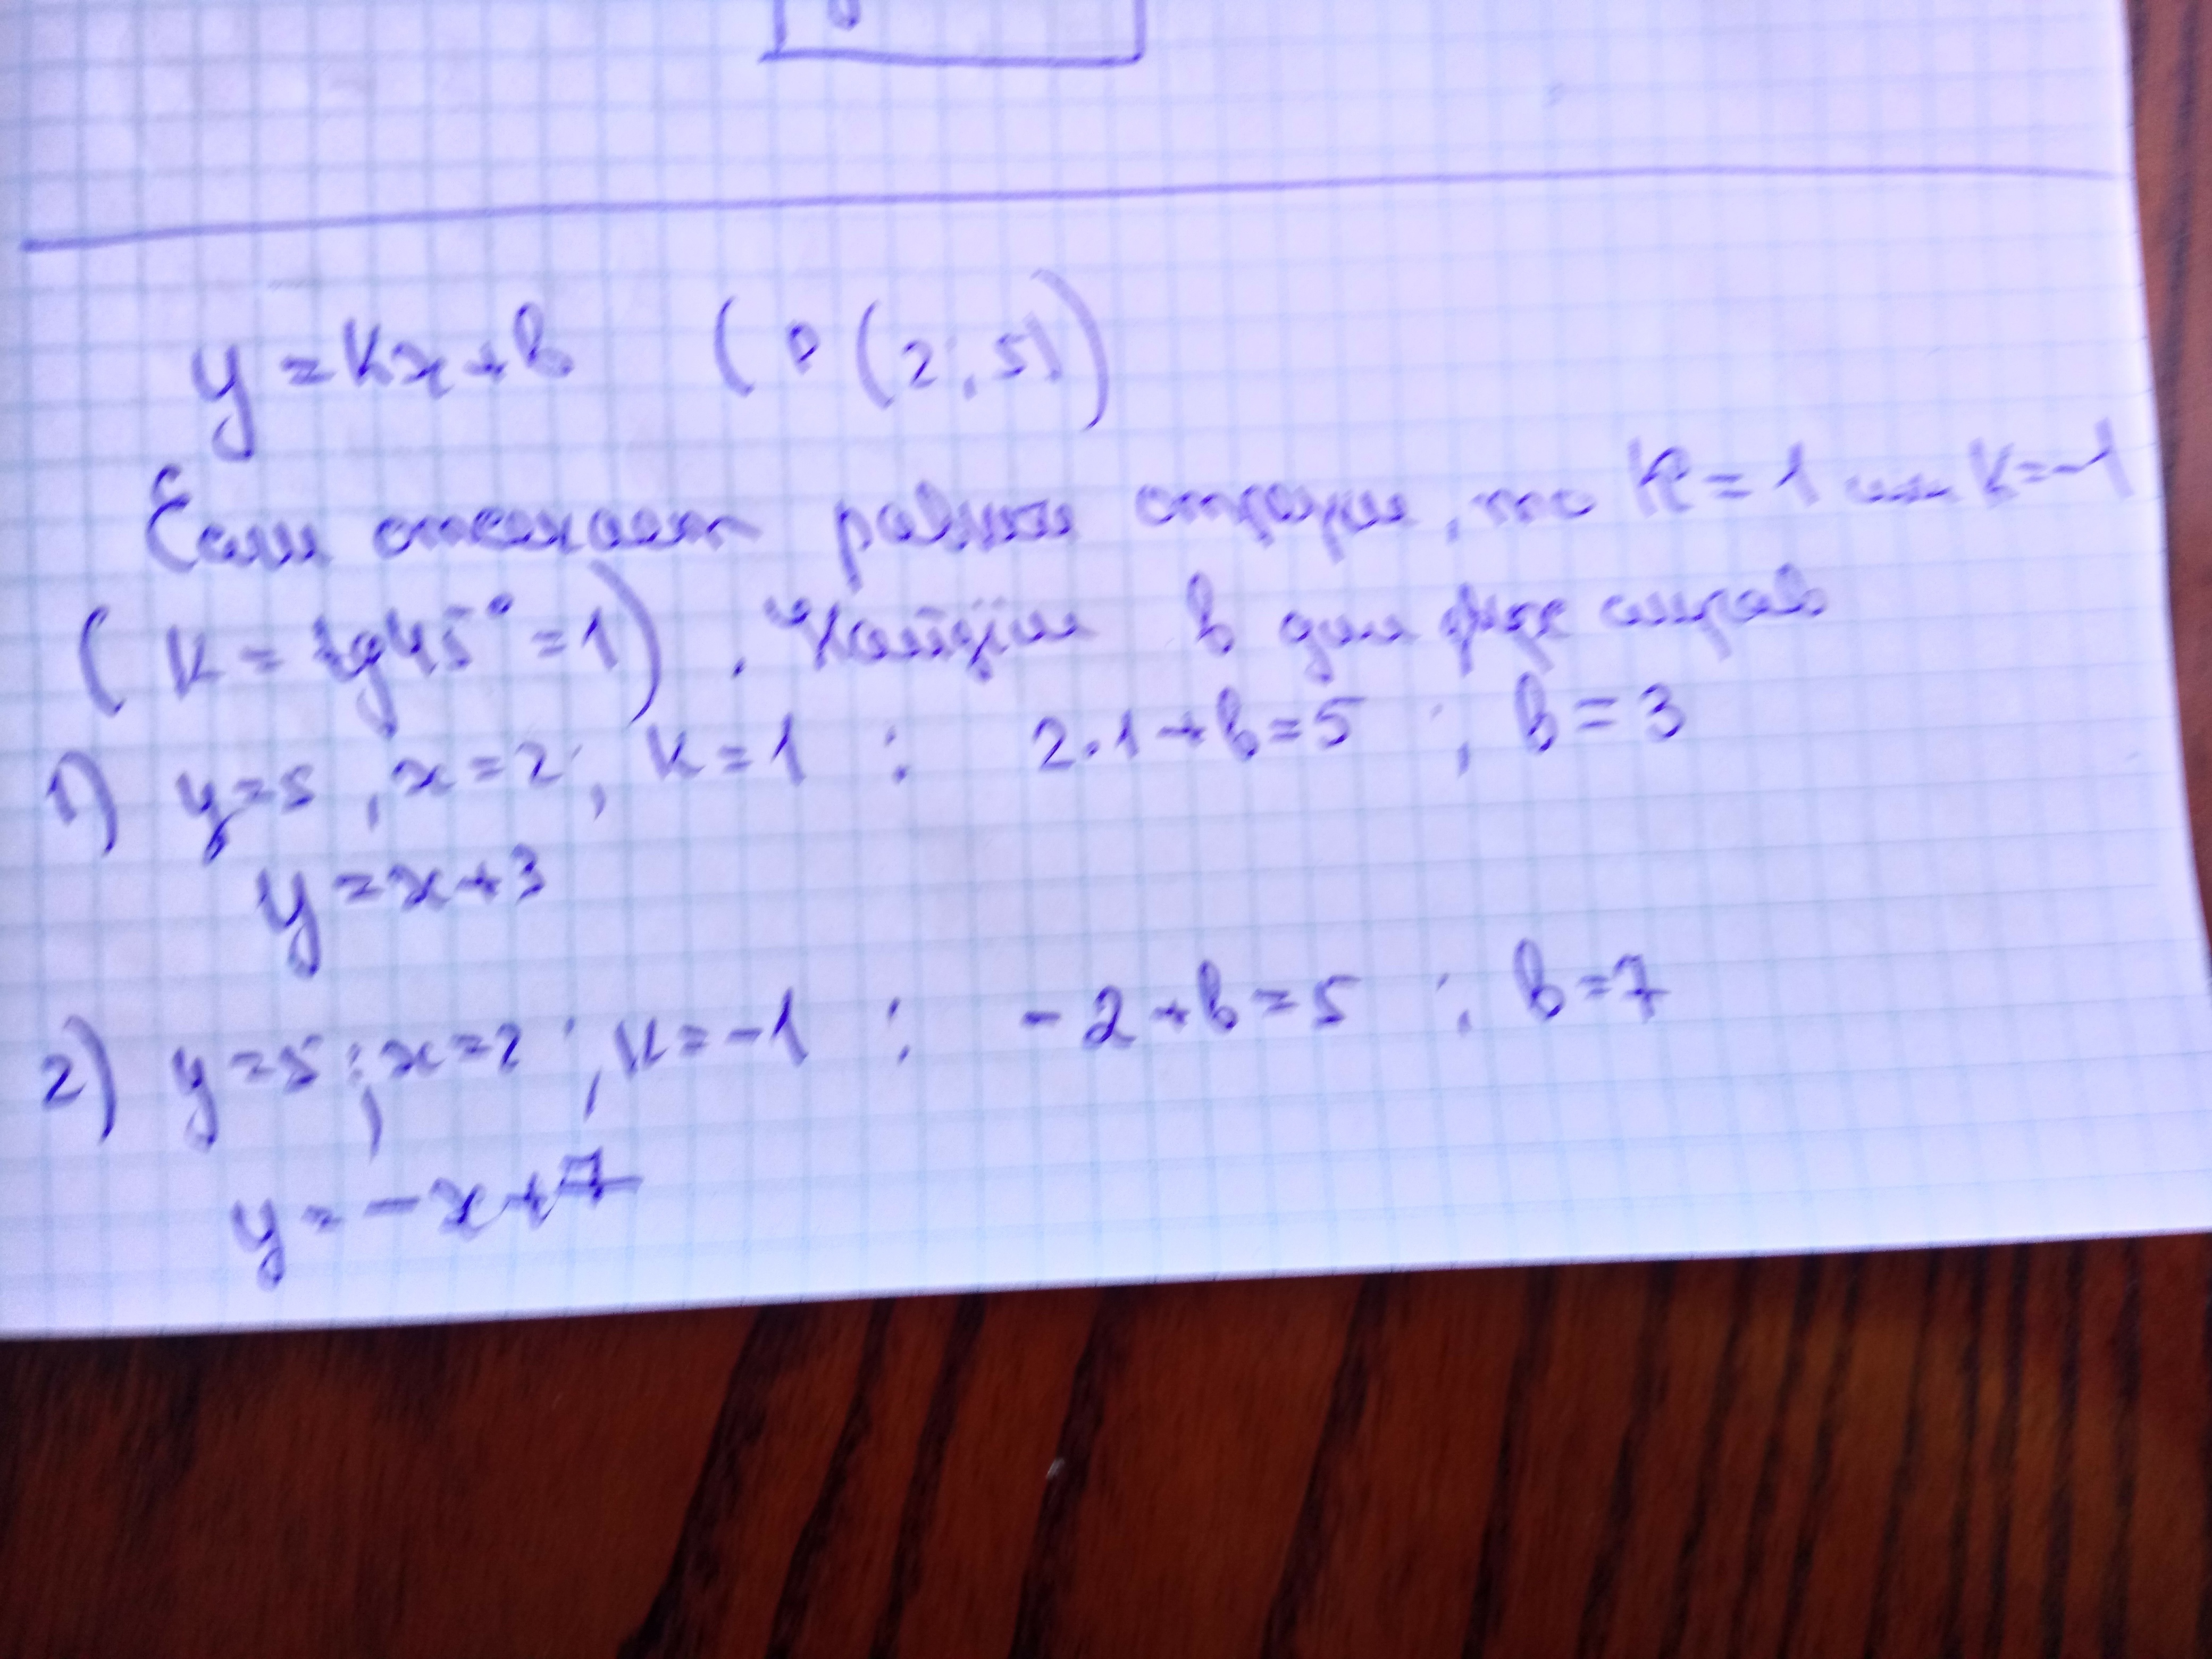 y = kx + b ( P (2; 5) )
Если отсекает равные отрезки, то k = 1 или k = -1
( k = tg 45° = 1 ) . Найдём b для двух случаев
1) y = 5 , x = 2 ; k = 1 : 2 · 1 + b = 5 ; b = 3
y = x + 3
2) y = 5 ; x = 2 ; k = -1 : - 2 + b = 5 ; b = 7
y = - x + 7